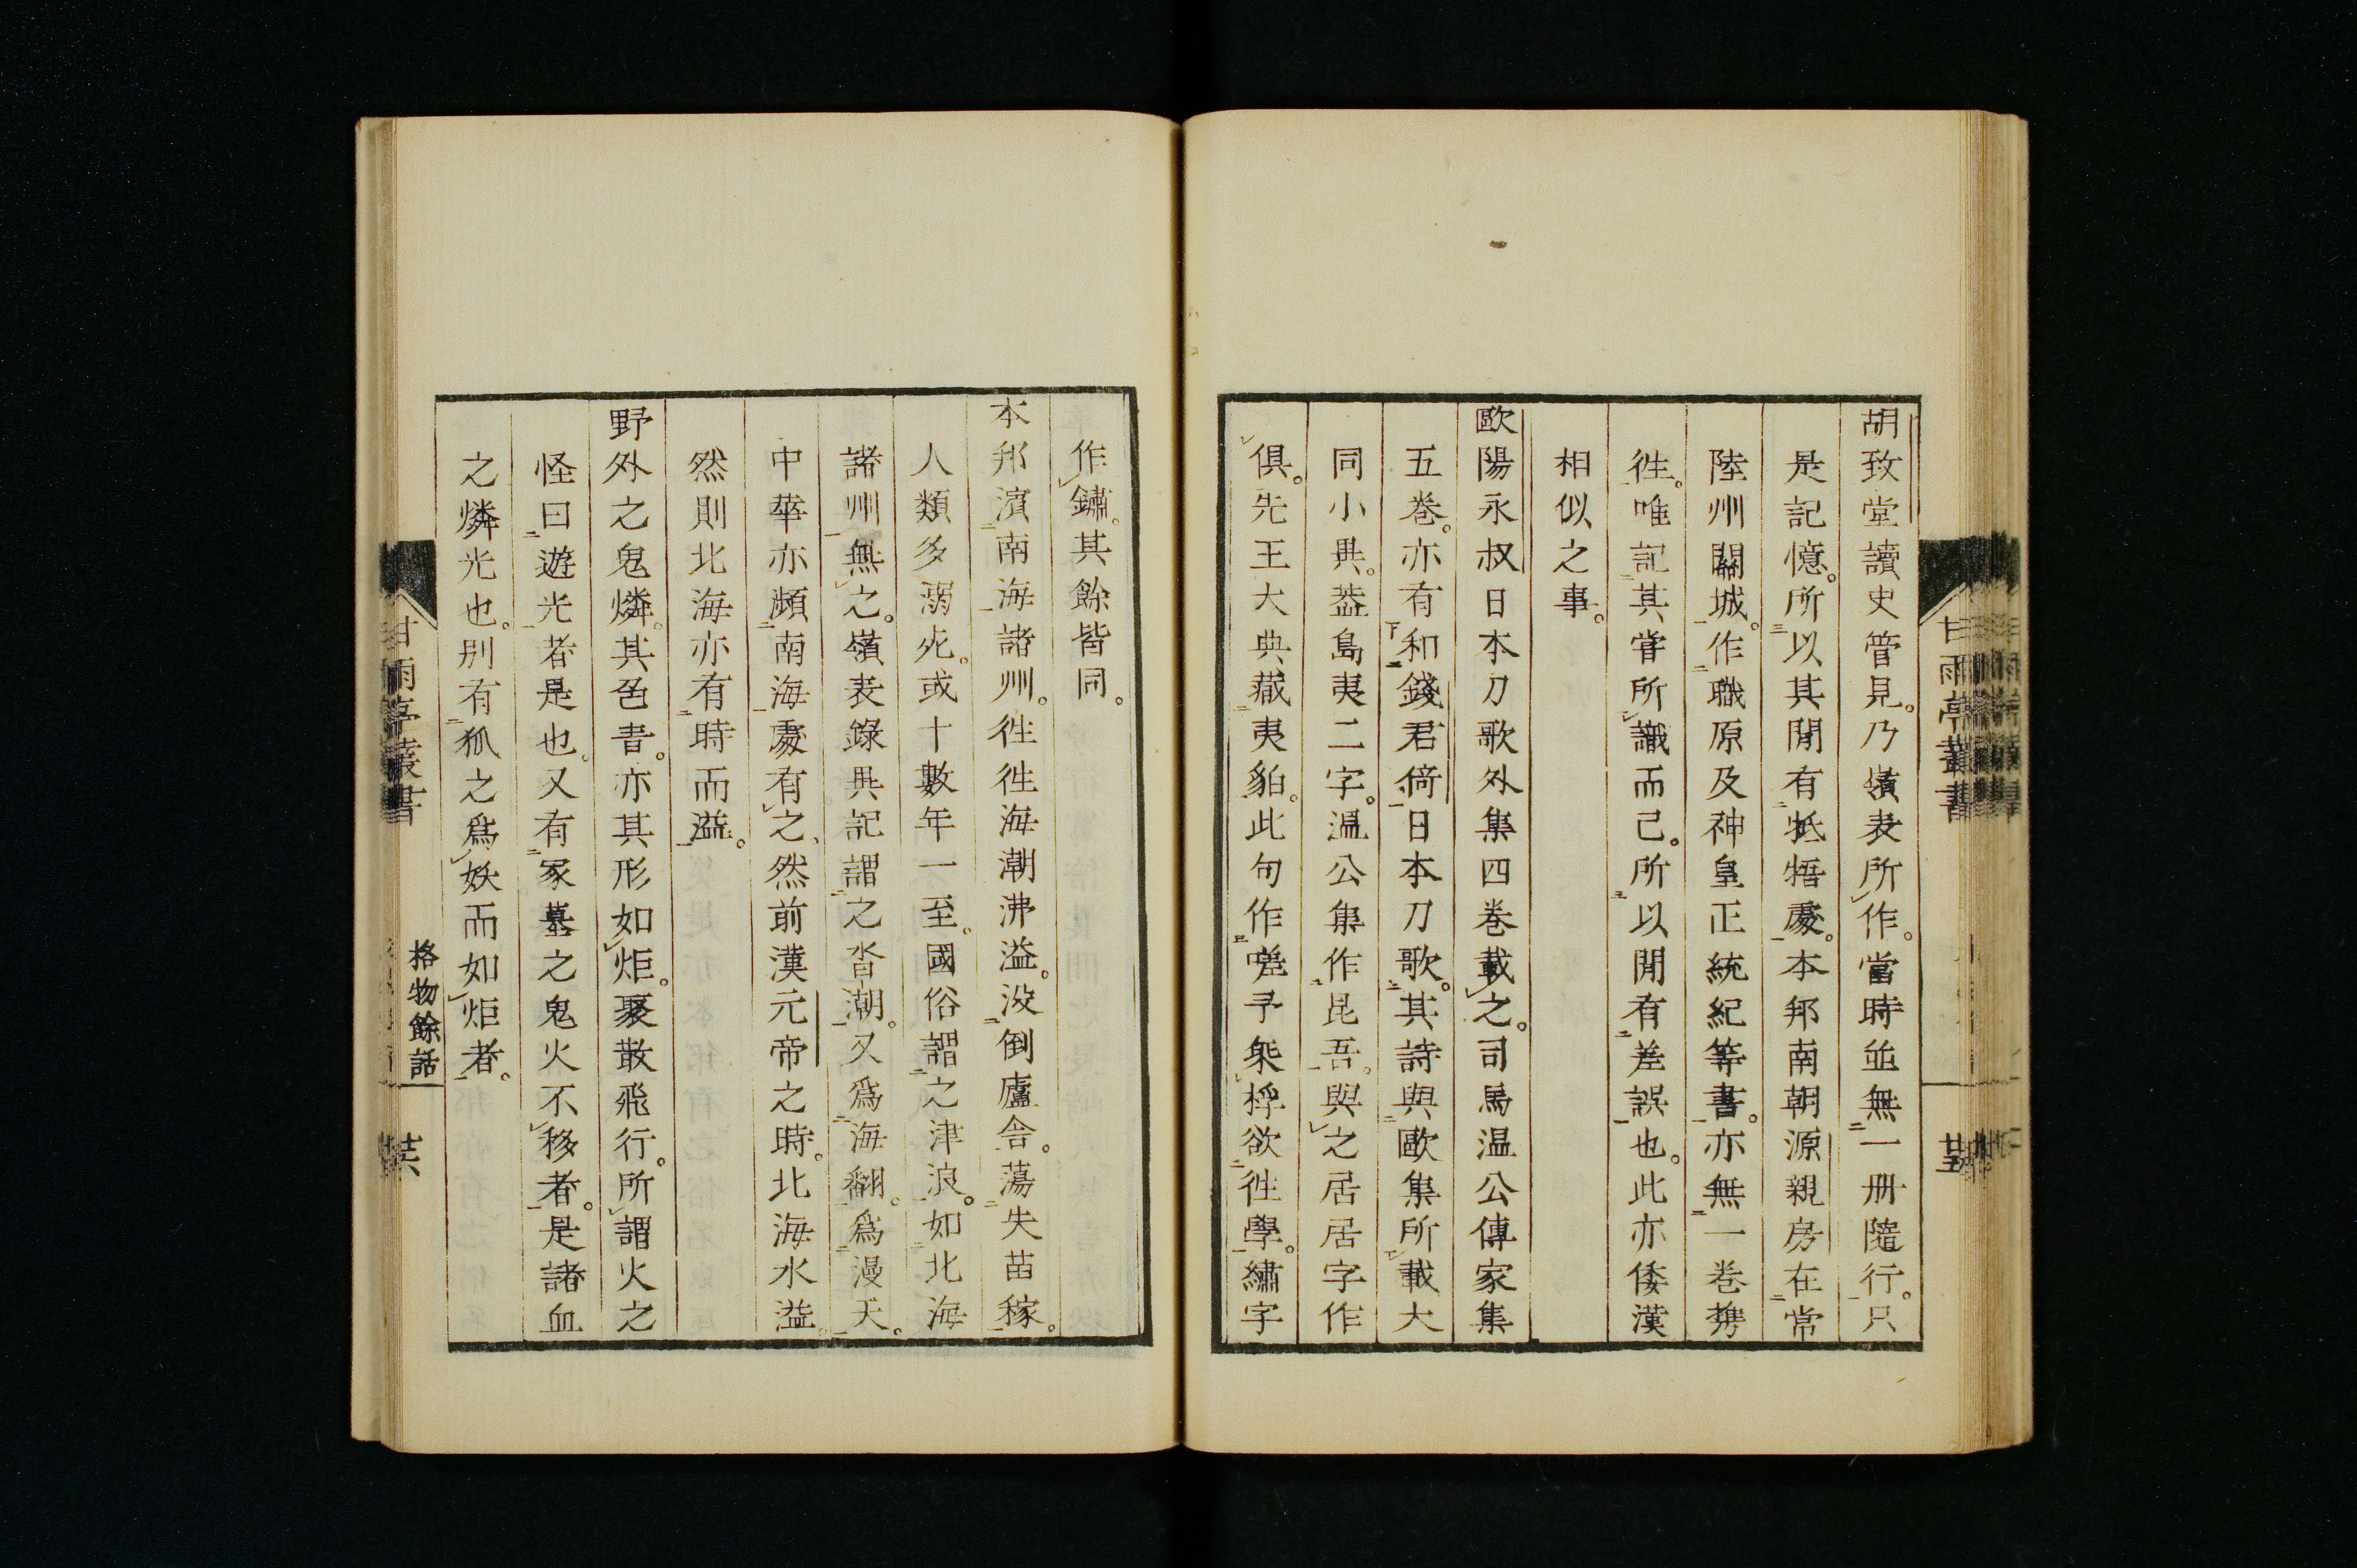 胡致堂讀史管見。乃嶺表所作。當時並無一冊隨行。只
是記憶。所以其間有牴牾處。本邦南朝源親房在常
陸州關城。作職原及神皇正統紀等書。亦無一卷攜
徃。唯記其甞所識而已。所以間有差誤也。此亦倭漢
相似之事。
歐陽永叔日本刀歌外集四卷載之。司馬温公傳家集
五卷。亦有和錢君倚日本刀歌。其詩與歐集所載大
同小異。葢島夷二字。温公集作昆吾。與之居居字作
俱。先王大典藏夷貊。此句作嗟予乘桴欲徃學。繡字
甘雨亭叢書
廿五
作鏽。其餘皆同。
本邦濱南海諸州。徃徃海潮沸溢。没倒廬舎。蕩失苗稼。
人類多溺死。或十數年一至。國俗謂之津浪。如北海
諸州無之。嶺表錄異記謂之沓潮。又爲海翻。爲漫天。
中華亦瀕南海處有之、然前漢元帝之時。北海水溢。
然則北海亦有時而溢。
野外之鬼燐。其色青。亦其形如炬。聚散飛行。所謂火之
怪曰遊光者是也。又有冢墓之鬼火不移者。是諸血
之燐光也。別有狐之爲妖而如炬者。
甘雨亭叢書
格物餘話
廿六